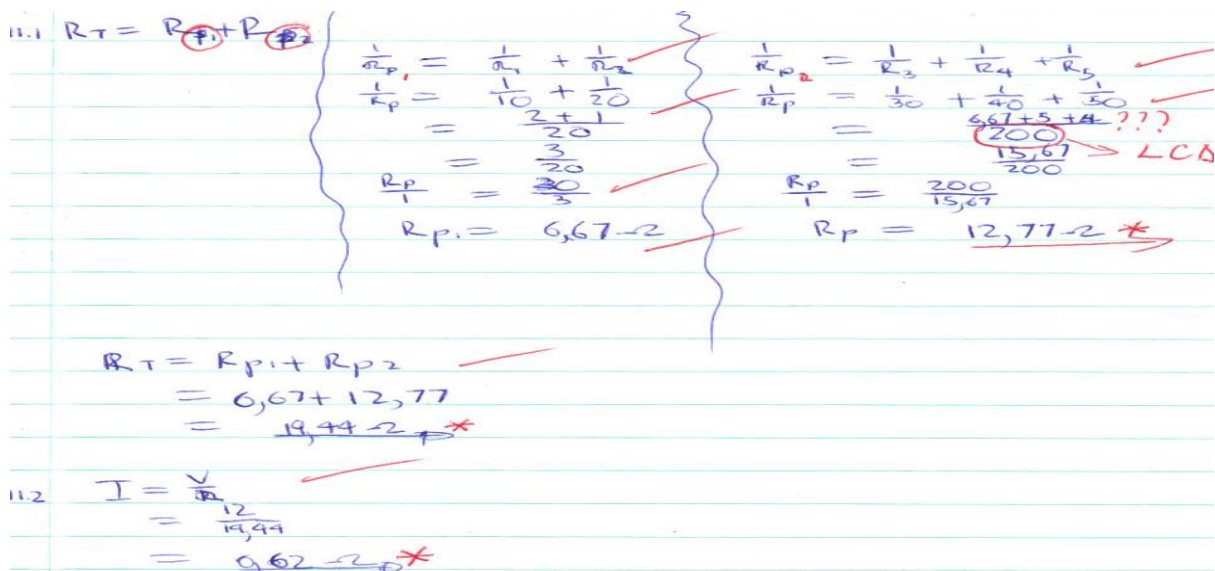 11.1 R_T = R_P1 + R_P2
1/R_P1 = 1/R_1 + 1/R_2
1/R_P = 1/10 + 1/20
= 2 + 1 / 20
= 3/20
R_P/1 = 20/3
R_P1 = 6,67 Ω
1/R_P2 = 1/R_3 + 1/R_4 + 1/R_5
1/R_P = 1/30 + 1/40 + 1/50
= 6,67 + 5 + 4 / 200 ???
→ LCD
= 15,67/200
R_P/1 = 200/15,67
R_P = 12,77 Ω *
R_T = R_P1 + R_P2
= 6,67 + 12,77
= 19,44 Ω *
11.2 I = V/R
= 12/19,44
= 0,62 Ω *